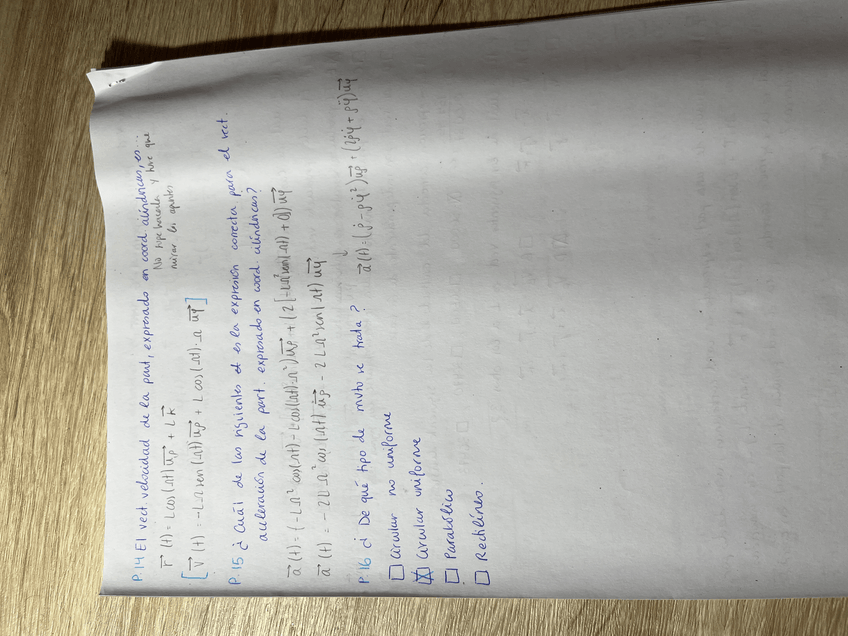 P.14 El vect velocidad de la part, expresado en coord cilíndricas, es...
r⃗ (t) = L cos(Ωt) u⃗ρ + L k⃗
No sipe hacerla y hice que
mirar los apuntes
[v⃗ (t) = -LΩ sen(Ωt) u⃗ρ + L cos(Ωt)·Ω u⃗φ]
P.15 ¿Cuál de las siguientes el es la expresión correcta para el vect.
aceleración de la part. expresado en coord. cilíndricas?
a⃗ (t) = (-LΩ² cos(Ωt) - L cos(Ωt)·Ω²) u⃗ρ + (2[-LΩ² sen(Ωt) + 0]) u⃗φ
a⃗ (t) = -2LΩ² cos(Ωt) u⃗ρ - 2LΩ² sen(Ωt) u⃗φ
↓
a⃗(t) = (ρ̈ - ρφ̇²) u⃗ρ + (2ρ̇φ̇ + ρφ̈) u⃗φ
P.16 ¿De qué tipo de mvto se trata?
☐ Circular no uniforme
☒ Circular uniforme
☐ Parabólico
☐ Rectilíneo.